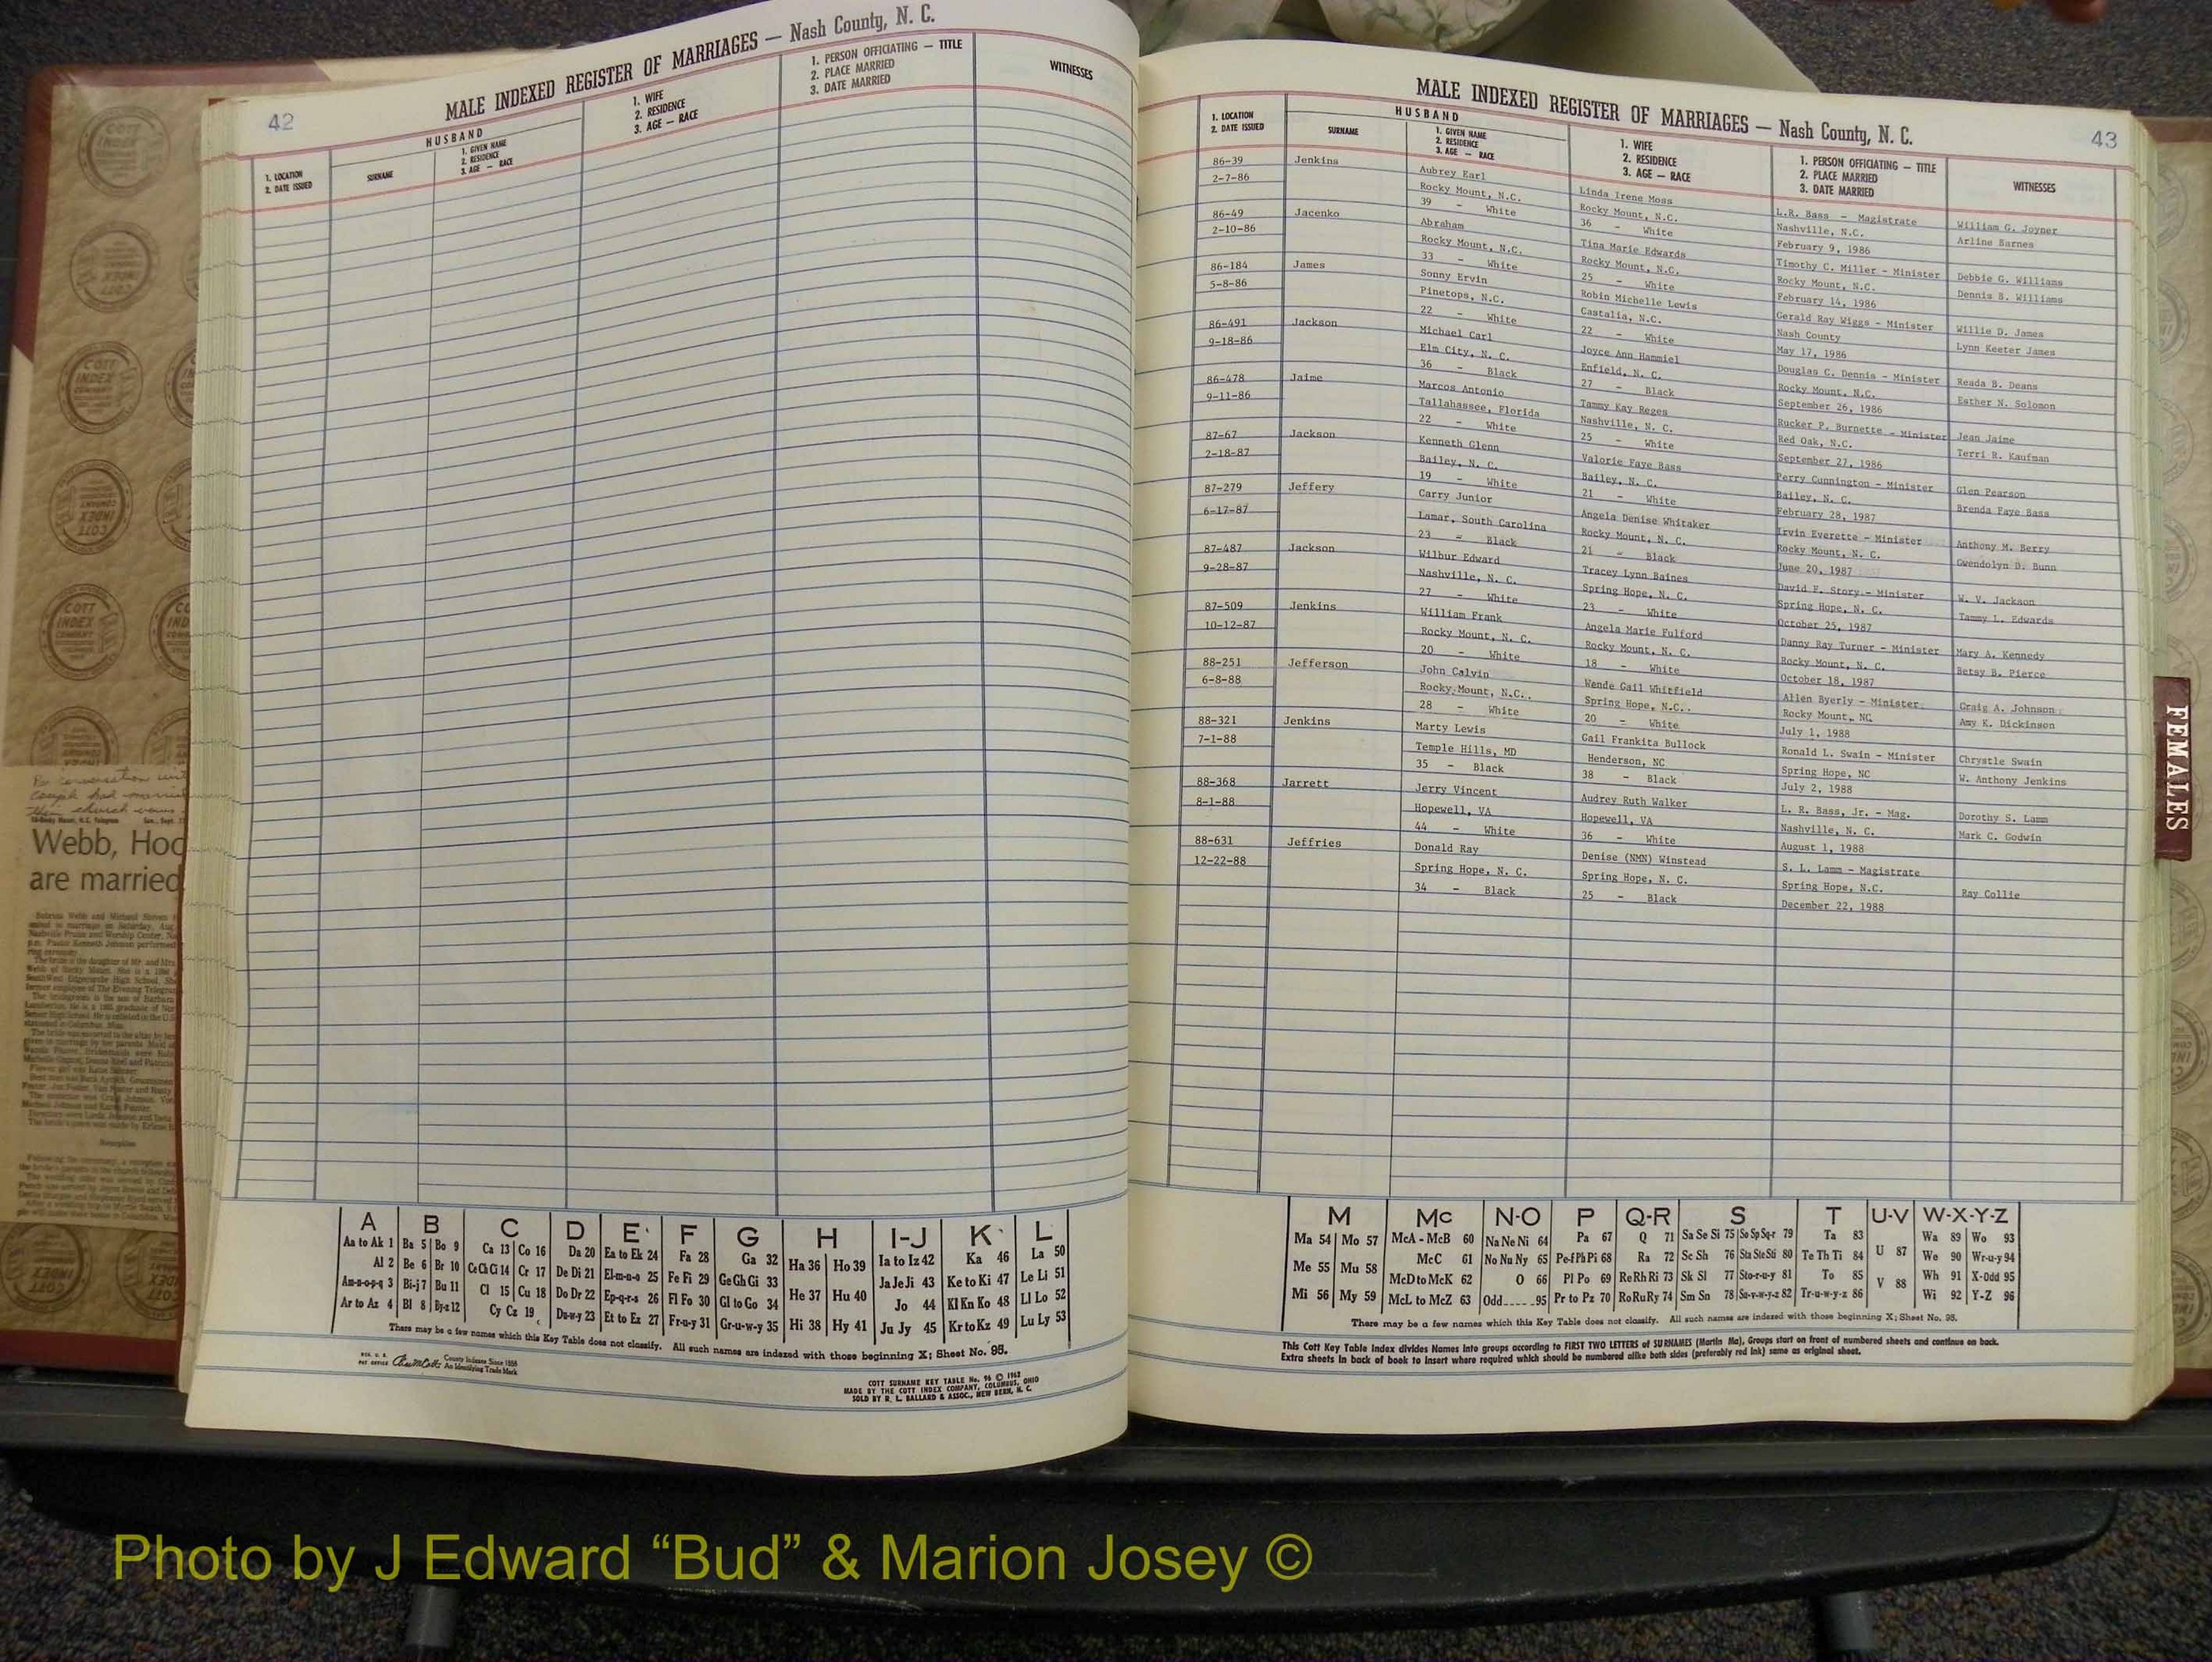 42
MALE INDEXED REGISTER OF MARRIAGES — Nash County, N. C.
1. LOCATION
2. DATE ISSUED
HUSBAND
SURNAME
1. GIVEN NAME
2. RESIDENCE
3. AGE — RACE
1. WIFE
2. RESIDENCE
3. AGE — RACE
1. PERSON OFFICIATING — TITLE
2. PLACE MARRIED
3. DATE MARRIED
WITNESSES
Webb,
are married
A B C D E F G H I-J K L
Aa to Ak 1 Ba 5 Bo 9 Ca 13 Co 16 Da 20 Ea to Ek 24 Fa 28 Ga 32 Ha 36 Ho 39 Ia to Iz 42 Ka 46 La 50
Al 2 Be 6 Br 10 Ce Ch Ci 14 Cr 17 De Di 21 El-m-n-o 25 Fe Fi 29 Ge Gh Gi 33 Ja Je Ji 43 Ke to Ki 47 Le Li 51
Am-n-o-p-q 3 Bi-j 7 Bu 11 Cl 15 Cu 18 Do Dr 22 Ep-q-r-s 26 Fl Fo 30 Gl to Go 34 He 37 Hu 40 Jo 44 Kl Kn Ko 48 Ll Lo 52
Ar to Az 4 Bl 8 By-z 12 Cy Cz 19 Du-w-y 23 Et to Ez 27 Fr-u-y 31 Gr-u-w-y 35 Hi 38 Hy 41 Ju Jy 45 Kr to Kz 49 Lu Ly 53
There may be a few names which this Key Table does not classify. All such names are indexed with those beginning X; Sheet No. 95.
County Indexes Since 1888
An Identifying Trade Mark
COTT SURNAME KEY TABLE No. 96 © 1962
MADE BY THE COTT INDEX COMPANY, COLUMBUS, OHIO
SOLD BY R. L. BALLARD & ASSOC., NEW BERN, N. C.
43
MALE INDEXED REGISTER OF MARRIAGES — Nash County, N. C.
1. LOCATION
2. DATE ISSUED
HUSBAND
SURNAME
1. GIVEN NAME
2. RESIDENCE
3. AGE — RACE
1. WIFE
2. RESIDENCE
3. AGE — RACE
1. PERSON OFFICIATING — TITLE
2. PLACE MARRIED
3. DATE MARRIED
WITNESSES
86-39 Jenkins Aubrey Earl Linda Irene Moss L.R. Bass - Magistrate William G. Joyner
2-7-86 Rocky Mount, N.C. Rocky Mount, N.C. Nashville, N.C. Arline Barnes
39 - White 36 - White February 9, 1986
86-49 Jacenko Abraham Tina Marie Edwards Timothy C. Miller - Minister Debbie G. Williams
2-10-86 Rocky Mount, N.C. Rocky Mount, N.C. Rocky Mount, N.C. Dennis B. Williams
33 - White 25 - White February 14, 1986
86-184 James Sonny Ervin Robin Michelle Lewis Gerald Ray Wiggs - Minister Willie D. James
5-8-86 Pinetops, N.C. Castalia, N.C. Nash County Lynn Keeter James
22 - White 22 - White May 17, 1986
86-491 Jackson Michael Carl Joyce Ann Hammiel Douglas C. Dennis - Minister Reada B. Deans
9-18-86 Elm City, N. C. Enfield, N. C. Rocky Mount, N.C. Esther N. Solomon
36 - Black 27 - Black September 26, 1986
86-478 Jaime Marcos Antonio Tammy Kay Reges Rucker P. Burnette - Minister Jean Jaime
9-11-86 Tallahassee, Florida Nashville, N. C. Red Oak, N.C. Terri R. Kaufman
22 - White 25 - White September 27, 1986
87-67 Jackson Kenneth Glenn Valorie Faye Bass Perry Cunnington - Minister Glen Pearson
2-18-87 Bailey, N. C. Bailey, N. C. Bailey, N. C. Brenda Faye Bass
19 - White 21 - White February 28, 1987
87-279 Jeffery Carry Junior Angela Denise Whitaker Irvin Everette - Minister Anthony M. Berry
6-17-87 Lamar, South Carolina Rocky Mount, N. C. Rocky Mount, N. C. Gwendolyn D. Bunn
23 - Black 21 - Black June 20, 1987
87-487 Jackson Wilbur Edward Tracey Lynn Baines David F. Story - Minister W. V. Jackson
9-28-87 Nashville, N. C. Spring Hope, N. C. Spring Hope, N. C. Tammy L. Edwards
27 - White 23 - White October 25, 1987
87-509 Jenkins William Frank Angela Marie Fulford Danny Ray Turner - Minister Mary A. Kennedy
10-12-87 Rocky Mount, N. C. Rocky Mount, N. C. Rocky Mount, N. C. Betsy B. Pierce
20 - White 18 - White October 18, 1987
88-251 Jefferson John Calvin Wende Gail Whitfield Allen Byerly - Minister Craig A. Johnson
6-8-88 Rocky Mount, N.C. Spring Hope, N.C. Rocky Mount, NC Amy K. Dickinson
28 - White 20 - White July 1, 1988
88-321 Jenkins Marty Lewis Gail Frankita Bullock Ronald L. Swain - Minister Chrystle Swain
7-1-88 Temple Hills, MD Henderson, NC Spring Hope, NC W. Anthony Jenkins
35 - Black 38 - Black July 2, 1988
88-368 Jarrett Jerry Vincent Audrey Ruth Walker L. R. Bass, Jr. - Mag. Dorothy S. Lamm
8-1-88 Hopewell, VA Hopewell, VA Nashville, N. C. Mark C. Godwin
44 - White 36 - White August 1, 1988
88-631 Jeffries Donald Ray Denise (NMN) Winstead S. L. Lamm - Magistrate
12-22-88 Spring Hope, N. C. Spring Hope, N. C. Spring Hope, N.C. Ray Collie
34 - Black 25 - Black December 22, 1988
FEMALES
M Mc N-O P Q-R S T U-V W-X-Y-Z
Ma 54 Mo 57 McA - McB 60 Na Ne Ni 64 Pa 67 Q 71 Sa Se Si 75 So Sp Sq-r 79 Ta 83 Wa 89 Wo 93
McC 61 No Nu Ny 65 Pe-f Ph Pi 68 Ra 72 Sc Sh 76 Sta Ste Sti 80 Te Th Ti 84 U 87 We 90 Wr-u-y 94
Me 55 Mu 58 McD to McK 62 O 66 Pl Po 69 Re Rh Ri 73 Sk Sl 77 Sto-r-u-y 81 To 85 V 88 Wh 91 X-Odd 95
Mi 56 My 59 McL to McZ 63 Odd 95 Pr to Pz 70 Ro Ru Ry 74 Sm Sn 78 Su-v-w-y-z 82 Tr-u-w-y-z 86 Wi 92 Y-Z 96
There may be a few names which this Key Table does not classify. All such names are indexed with those beginning X; Sheet No. 95.
This Cott Key Table Index divides Names into groups according to FIRST TWO LETTERS of SURNAMES (Martin Ma). Groups start on front of numbered sheets and continue on back.
Extra sheets in back of book to insert where required which should be numbered alike both sides (preferably red ink) same as original sheet.
Photo by J Edward “Bud” & Marion Josey ©